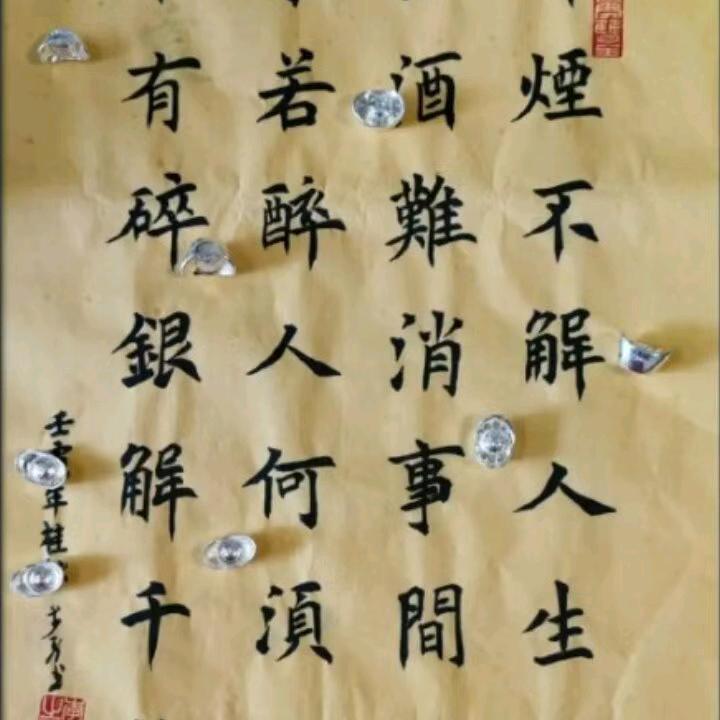 煙不解人生
酒難消事間
若醉人何須
有碎銀解千
壬寅年桂